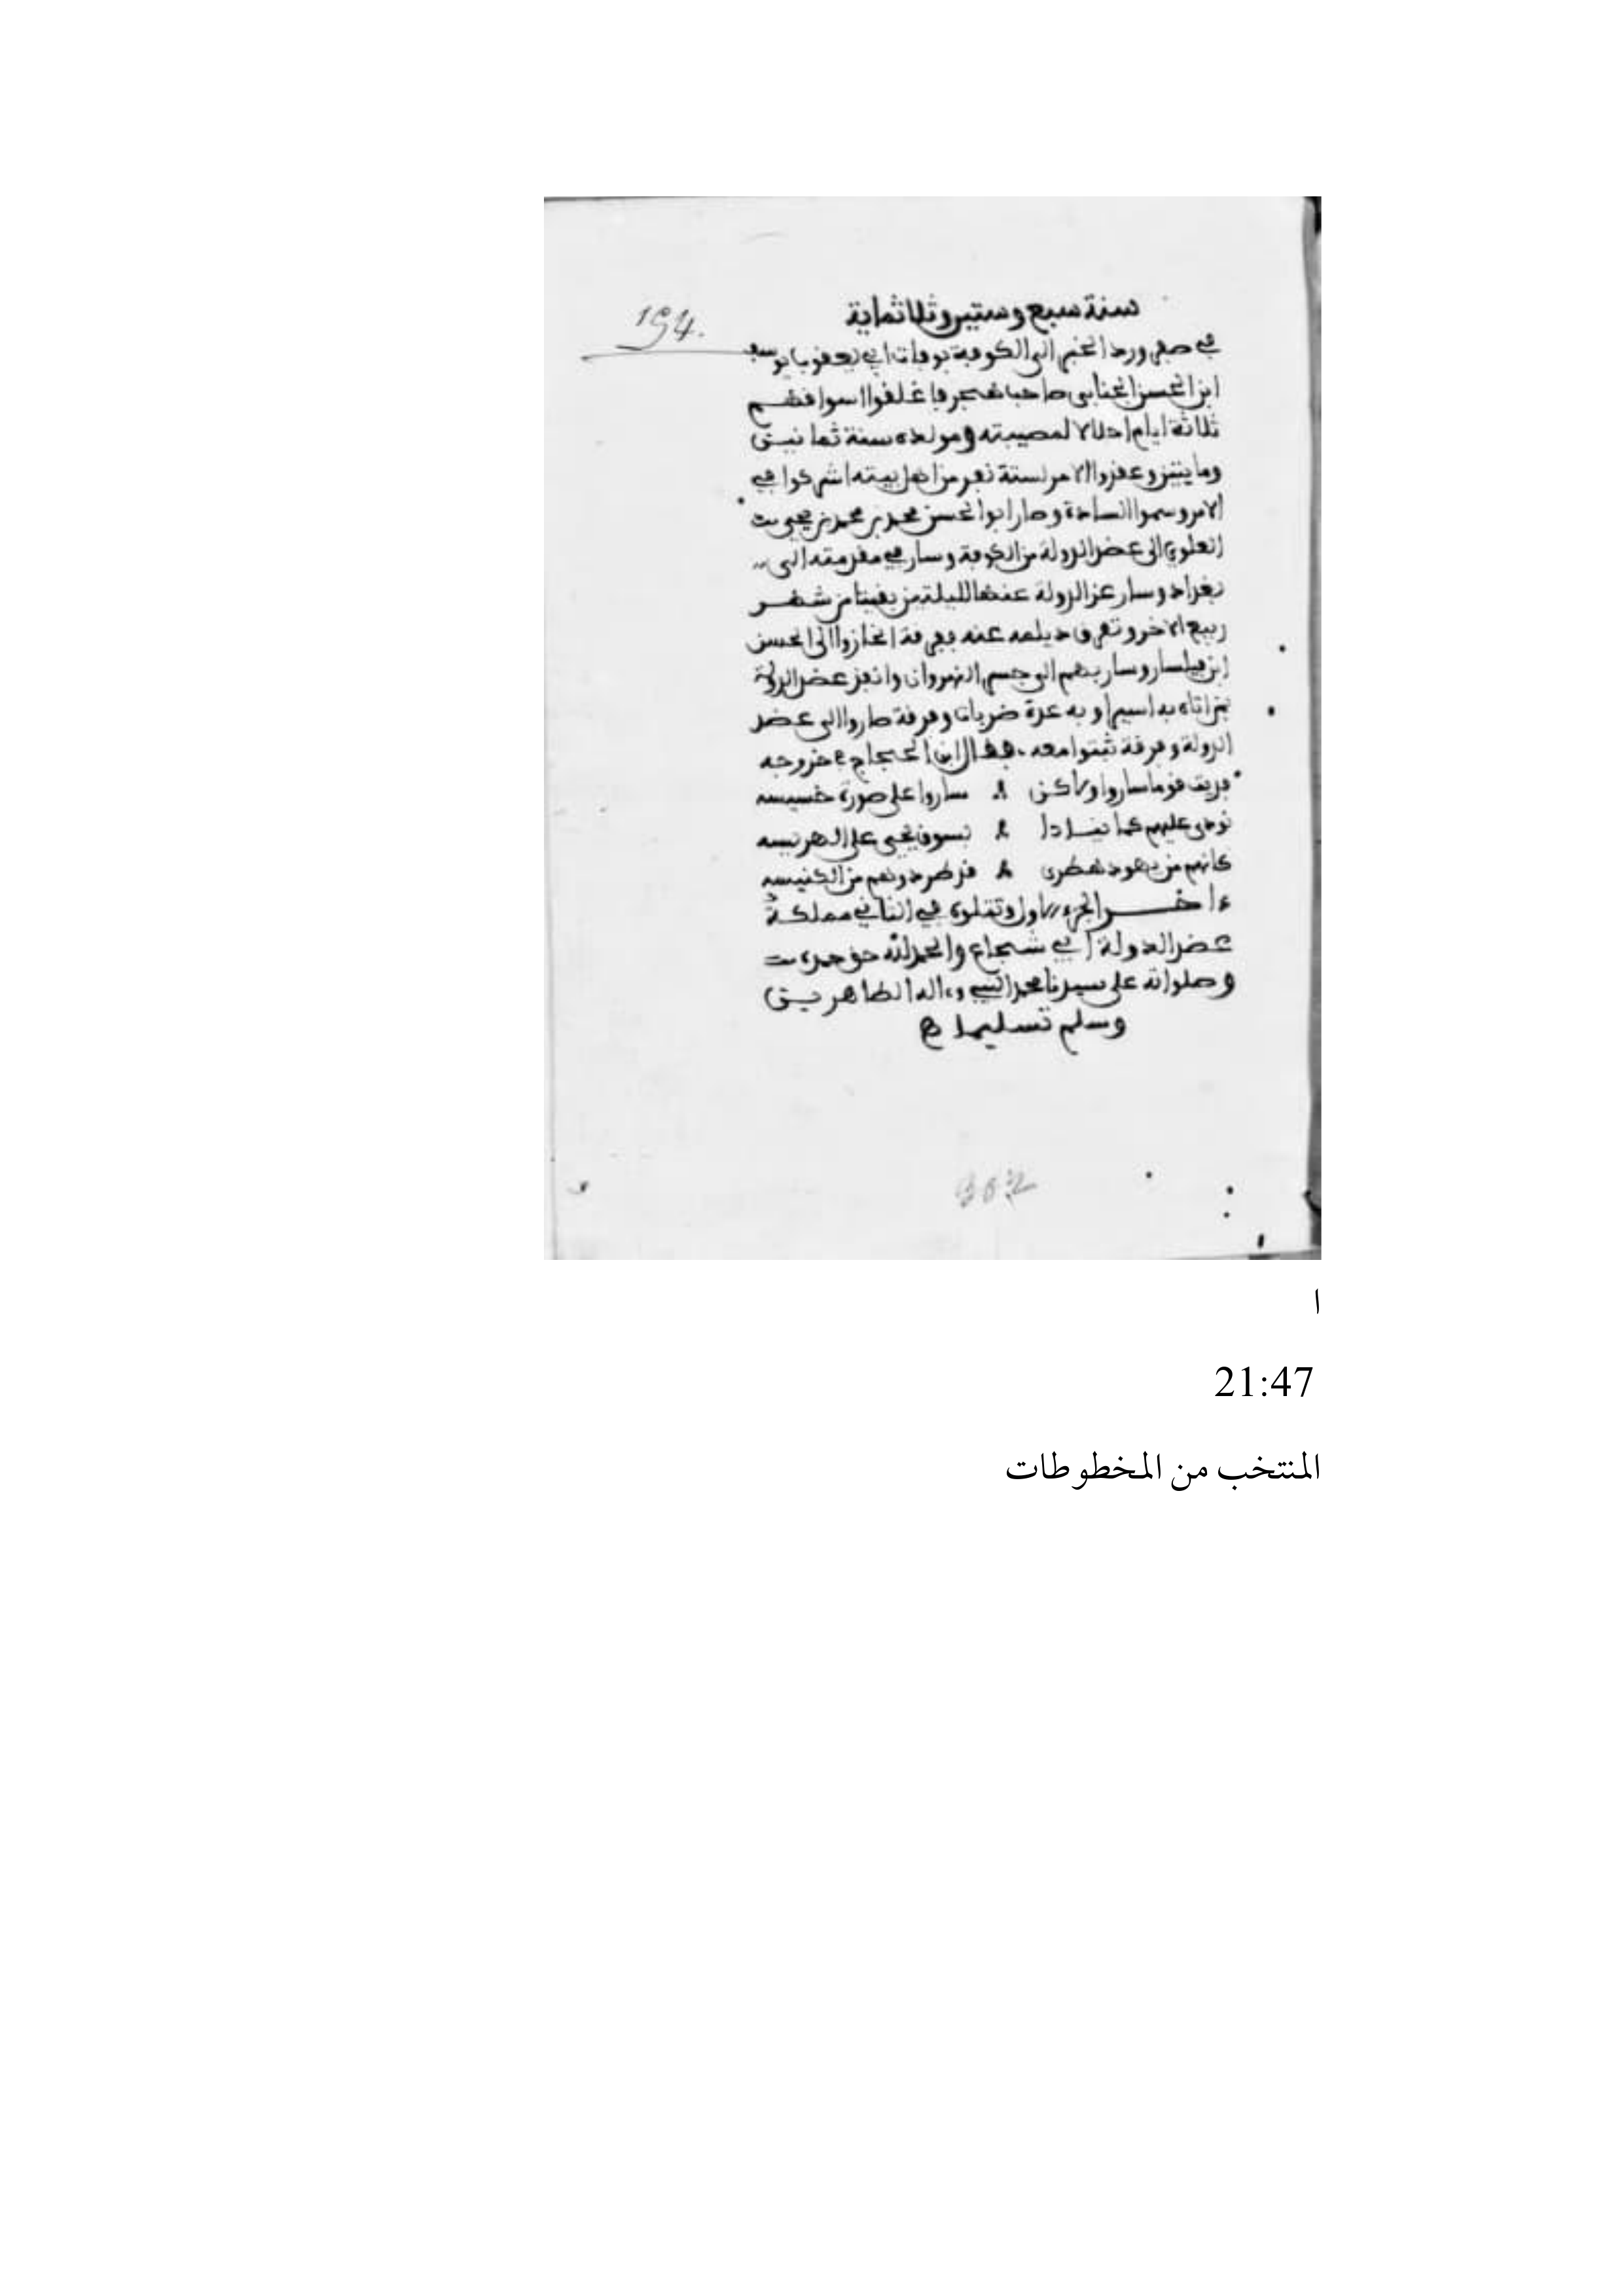 سنة سبع وستين وثلاثماية
194.
في صفر ورد الخبر الى الكوفة بوفات ابي يعقوب يوسف
ابن الحسن الجنابي صاحب هجر فاغلقوا اسواقهم
ثلاثة ايام اجلالا لمصيبته ومولده سنة ثمانين
ومايتين وعقدوا الامر لستة نفر من اهل بيته اشركوا في
الامر وسموا السادة وصار ابو الحسن محمد بن محمد بن يحيى
العلوي الى عضد الدولة من الكوفة وسار في مقدمته الى
بغداد وسار عز الدولة عنها لليلتين بقيتا من شهر
ربيع الاخر وتفرق ديلمه عنه ففرقة انحازوا الى الحسن
ابن فيلسار وسار بهم الى جسر النهروان وانفذ عضد الدولة
بمن اتاه به اسيرا وبه عدة ضربات وفرقة صاروا الى عضد
الدولة وفرقة ثبتوا معه، فقال ابن الحجاج في خروجه
فديت قوما ساروا ولاكن ساروا على صورة خسيسه
عليهم كما بسوق يحيى على الهريسه
كانهم من يهود قد طردوهم من الكنيسه
ءاخر الجزء الاول وتتلوه في الثاني مملكة
عضد الدولة ابي شجاع والحمد لله حق حمده
وصلواته على سيدنا محمد النبي وءاله الطاهرين
وسلم تسليما
ا
21:47
المنتخب من المخطوطات